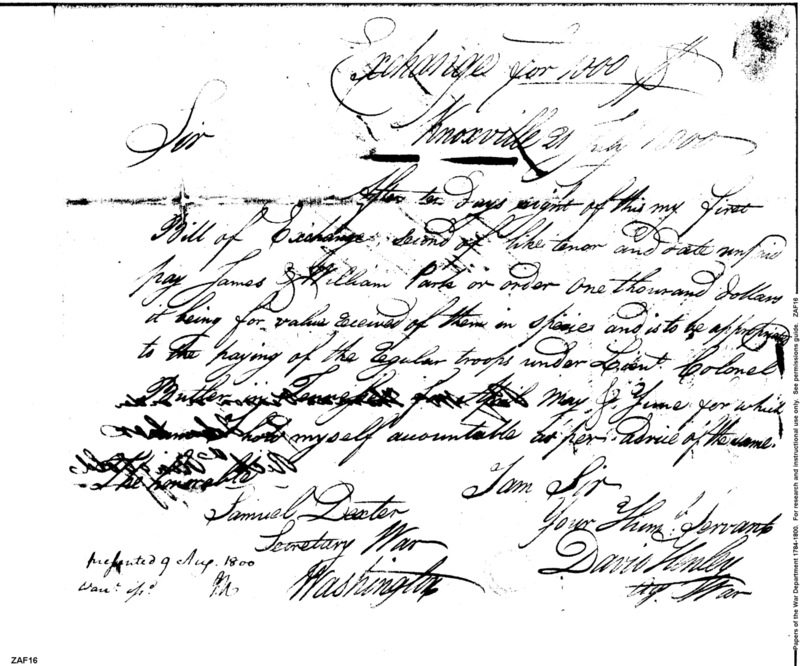 Exchange for 1000 $
Knoxville 21 July 1800
Sir
After ten days sight of this my first
Bill of Exchange second of like tenor and date unpaid
pay James & William Park or order One thousand dollars
it being for value received of them in specie and is to be appropriated
to the paying of the regular troops under Lieut Colonel
Butler in for April May & June for which
hold myself accountable as per advice of the same.
The honorable
I am Sir
Samuel Dexter
Your Humb. Servant
Secretary War
David Henley
presented 9 Aug. 1800
Washington
Ag. War
Papers of the War Department 1784-1800. For research and instructional use only. See permissions guide. ZAF16
ZAF16